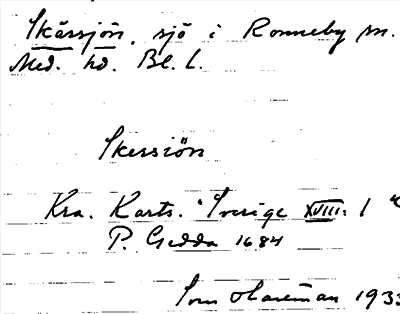 Skärsjön, sjö i Ronneby sn.
Med. hd. Bl. L.
Skersiön
Kra. Karts. Sverige XVIII: 1
P. Gedda 1684
1933